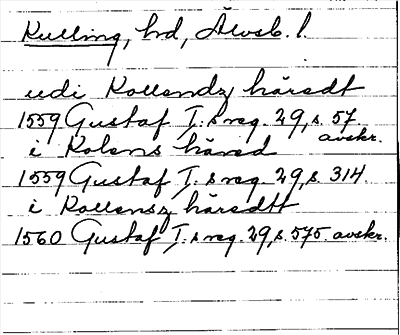 Kulling, hd, Älvsb. l.
udi Kollendz häredt
1559 Gustaf I:s reg. 29, s. 57
avskr.
i Kolens häred
1559 Gustaf I:s reg. 29, s. 314.
i Kollensz häredtt
1560 Gustaf I:s reg. 29, s. 575. avskr.